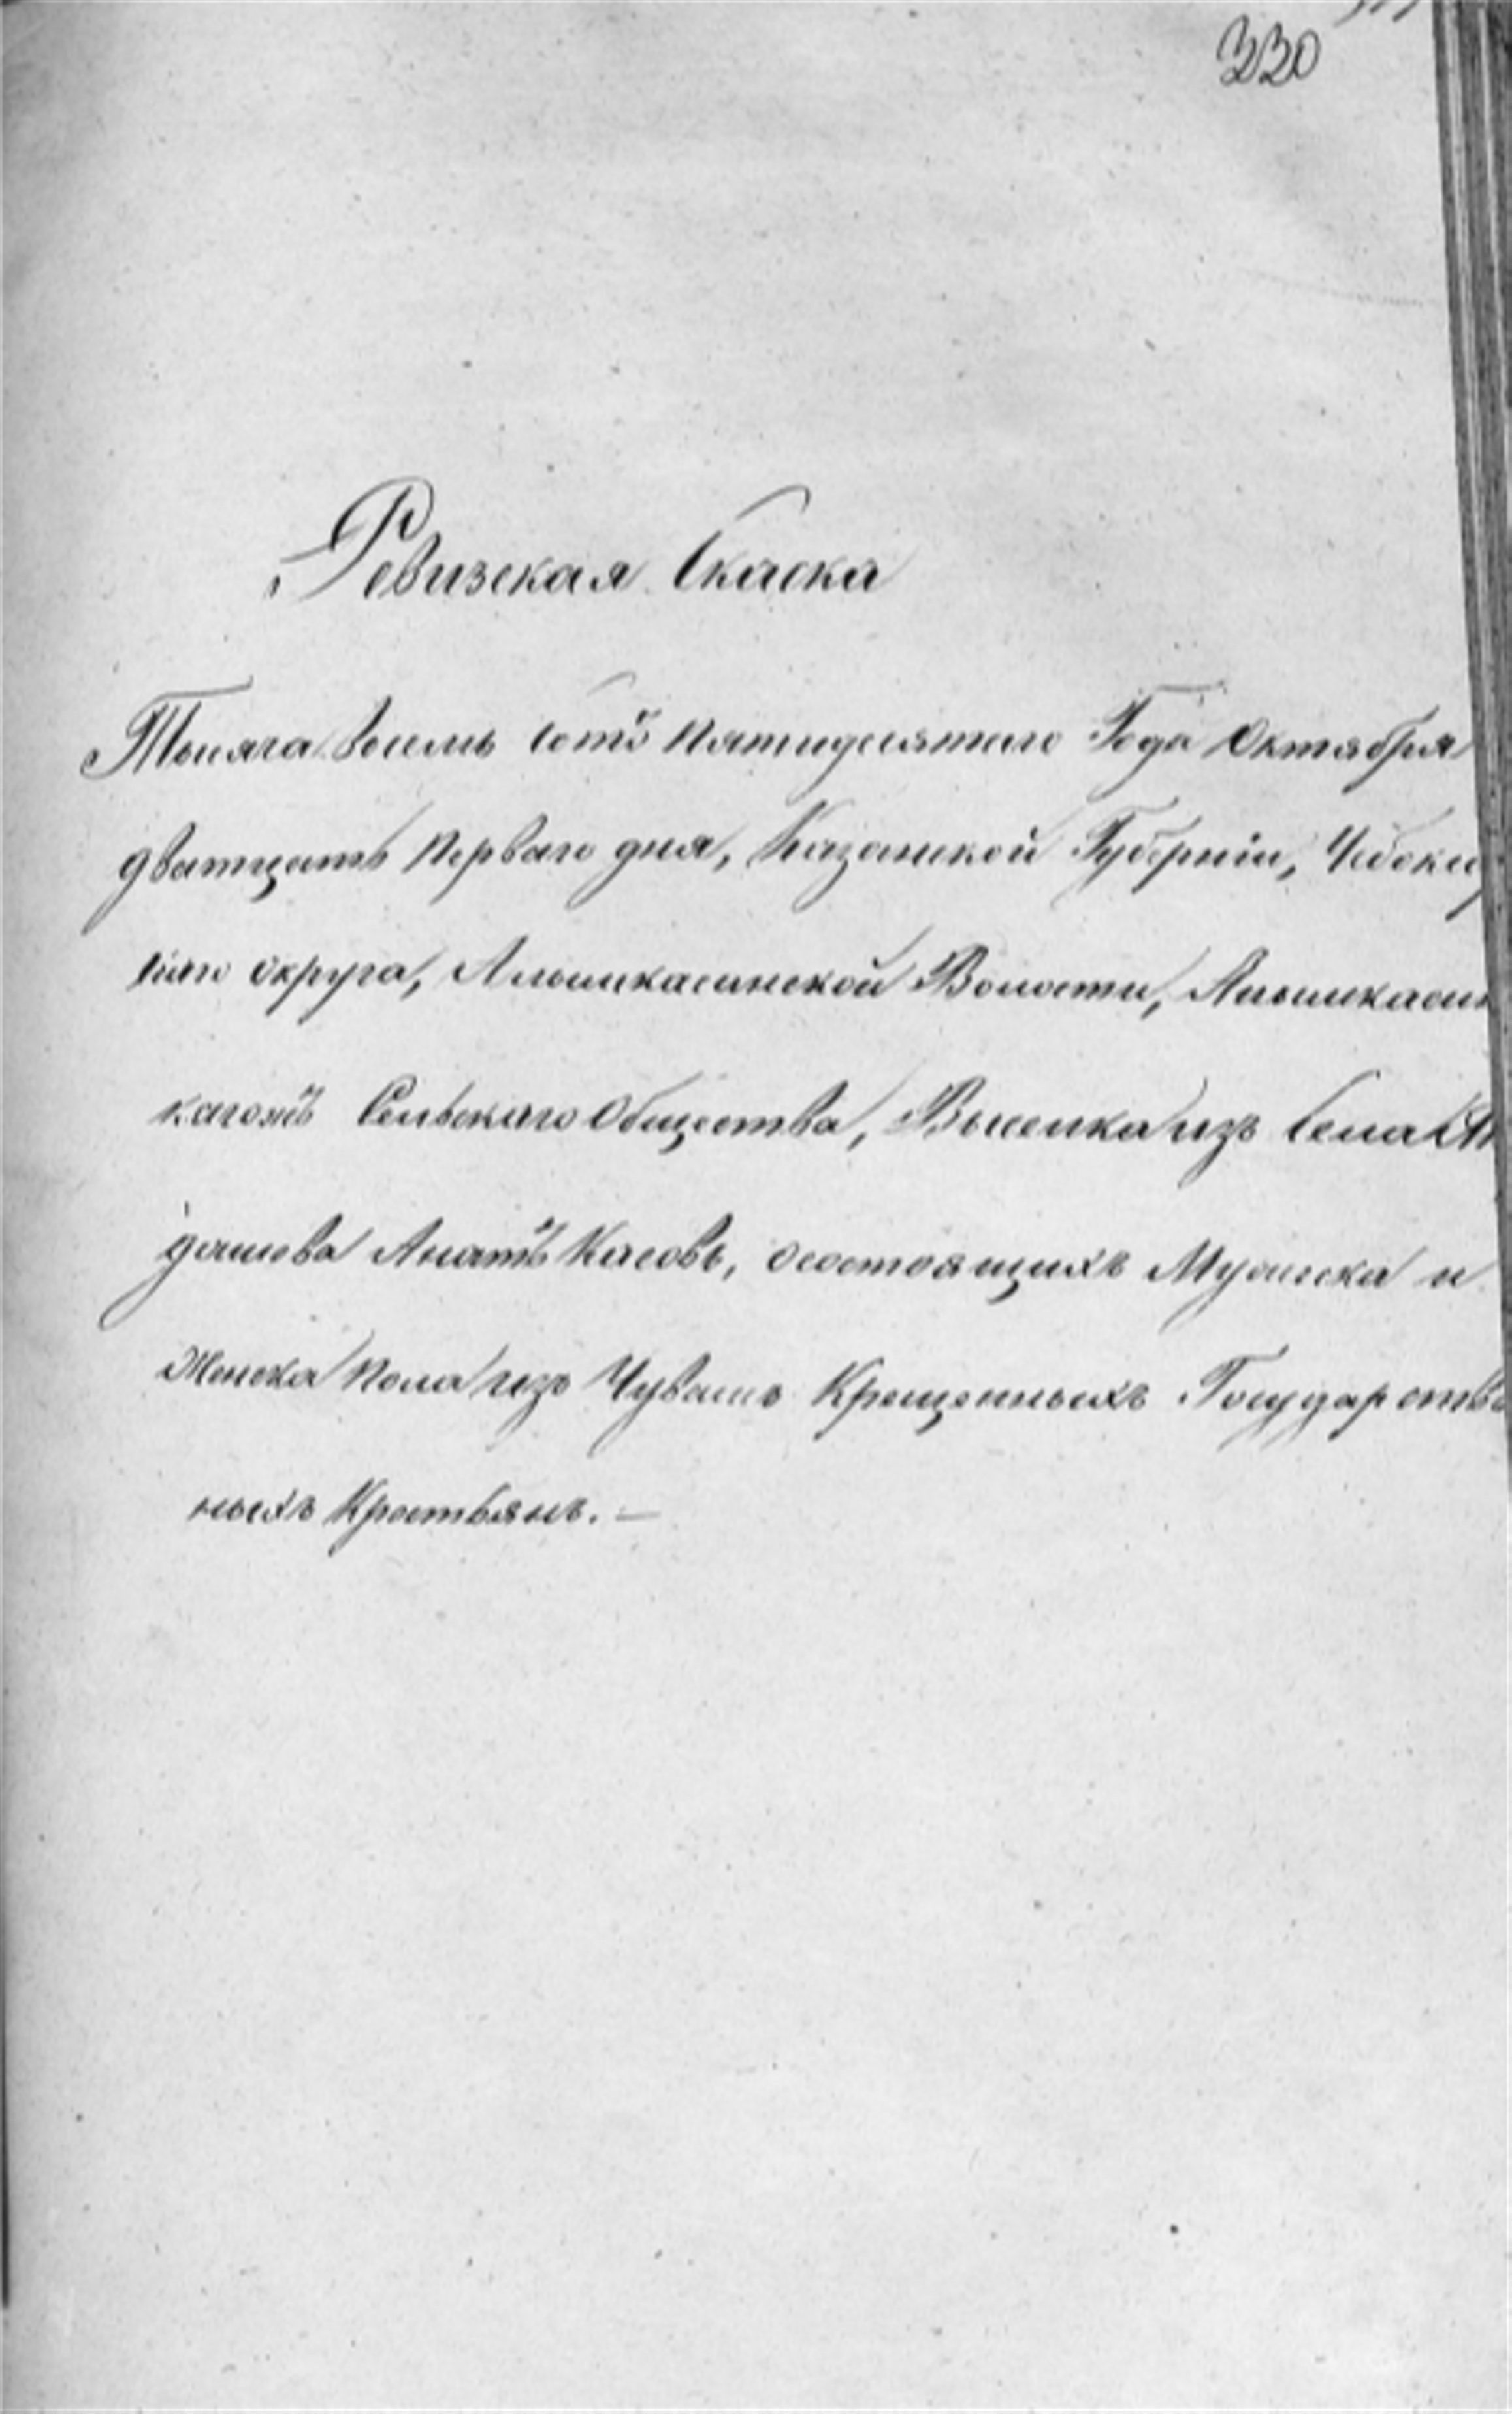 330
Ревизская Скаска
Тысяча восемь сотъ пятидесятаго Года Октября
дватцать перваго дня, Казанской Губерніи, Чебокса
скаго округа, Алымкасинской Волости, Алымкасин
скагожъ Сельскаго Общества, Выселка изъ Села
дашева Анаткасовъ, о состоящихъ Мужска и
Женска пола изъ Чувашъ Крещенныхъ Государств
ныхъ Крестьянъ. —